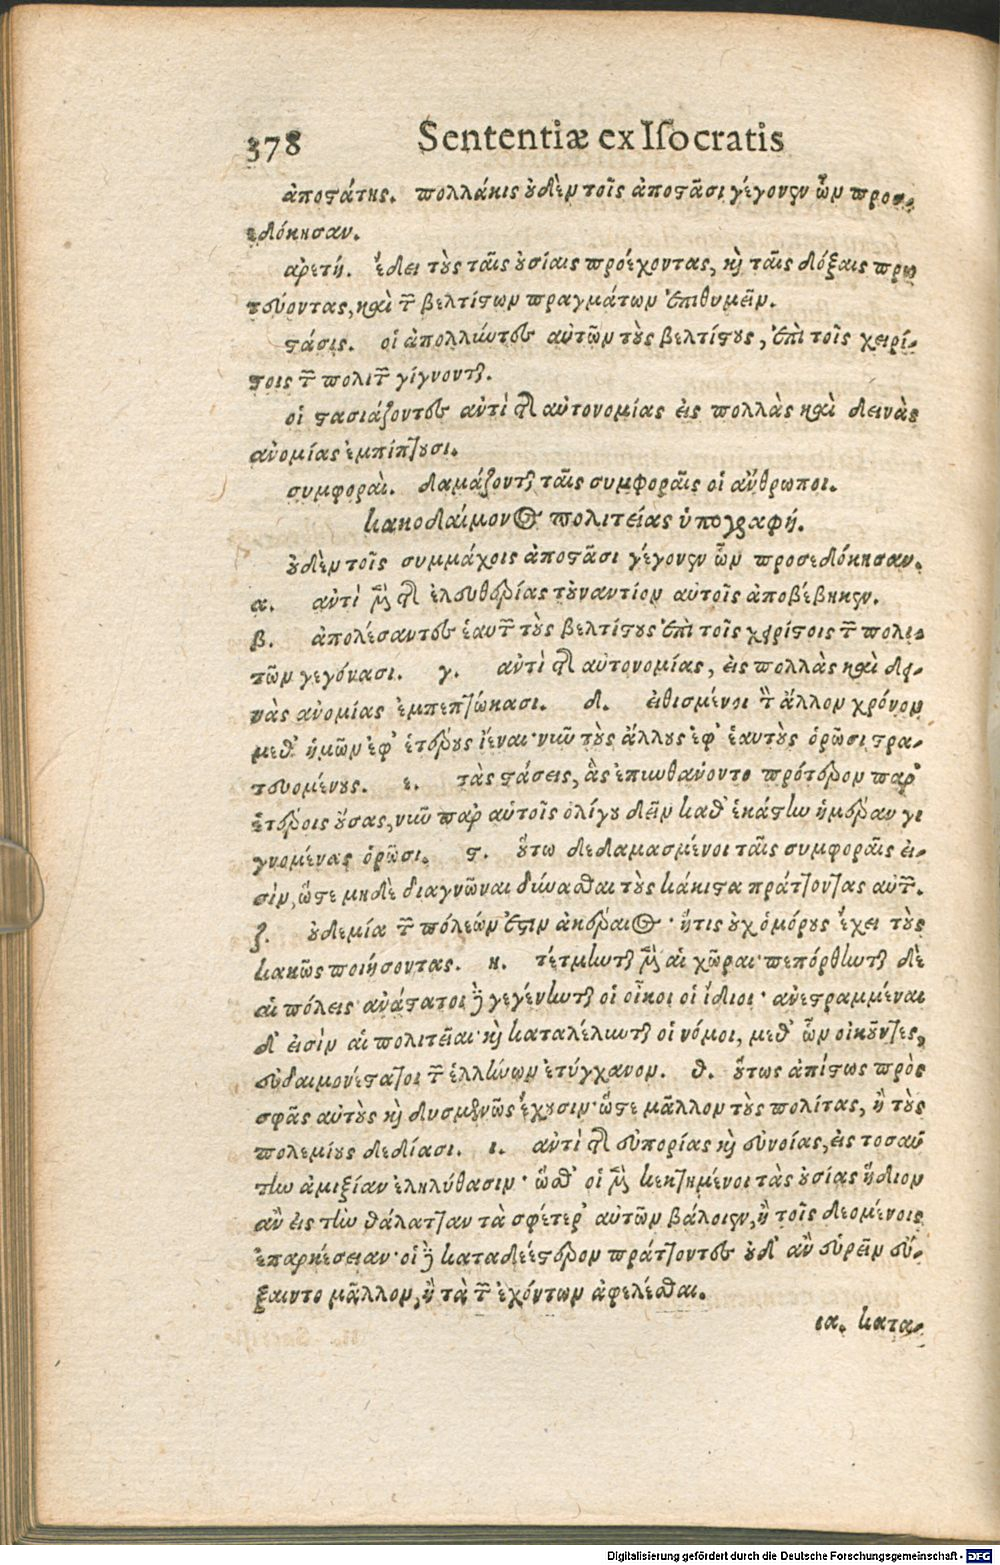 378 Sententiæ ex Isocratis
ἀποστάτης. πολλάκις οὐδὲν τοῖς ἀποστᾶσι γέγονεν ὧν προσ-
εδόκησαν.
ἀρετή. ἔδει τοὺς ταῖς οὐσίαις προέχοντας, καὶ ταῖς δόξαις πρω
τεύοντας, καὶ τῶν βελτίστων πραγμάτων ἐπιθυμεῖν.
στάσις. οἱ ἀπολλύντες αὐτῶν τοὺς βελτίστους, ἐπὶ τοῖς χειρί-
στοις τῶν πολιτῶν γίγνονται.
οἱ στασιάζοντες ἀντὶ τῆς αὐτονομίας εἰς πολλὰς καὶ δεινὰς
ἀνομίας ἐμπίπτουσι.
συμφοραὶ. δαμάζονται ταῖς συμφοραῖς οἱ ἄνθρωποι.
κακοδαίμονος πολιτείας ὑπογραφή.
οὐδὲν τοῖς συμμάχοις ἀποστᾶσι γέγονεν ὧν προσεδόκησαν.
α. ἀντὶ μὲν τῆς ἐλευθερίας τοὐναντίον αὐτοῖς ἀποβέβηκεν.
β. ἀπολέσαντες ἑαυτῶν τοὺς βελτίστους ἐπὶ τοῖς χειρίστοις τῶν πολι-
τῶν γεγόνασι. γ. ἀντὶ τῆς αὐτονομίας, εἰς πολλὰς καὶ δει-
νὰς ἀνομίας ἐμπεπτώκασι. δ. εἰθισμένοι τὸν ἄλλον χρόνον
μεθ' ἡμῶν ἐφ' ἑτέρους ἰέναι· νῦν τοὺς ἄλλους ἐφ' ἑαυτοὺς ὁρῶσι στρα-
τευομένους. ε. τὰς στάσεις, ἃς ἐπυνθάνοντο πρότερον παρ'
ἑτέροις οὔσας, νῦν παρ' αὑτοῖς ὀλίγου δεῖν καθ' ἑκάστην ἡμέραν γι
γνομένας ὁρῶσι. ϛ. οὕτω δεδαμασμένοι ταῖς συμφοραῖς εἰ-
σὶν, ὥστε μηδὲ διαγνῶναι δύνασθαι τοὺς κάκιστα πράττοντας αὐτῶν.
ζ. οὐδεμία τῶν πόλεών ἐστιν ἀκέραιος· ἥτις οὐχ ὁμόρους ἔχει τοὺς
κακῶς ποιήσοντας. η. τέτμηνται μὲν αἱ χῶραι· πεπόρθηνται δὲ
αἱ πόλεις· ἀνάστατοι δὲ γεγένηνται οἱ οἶκοι οἱ ἴδιοι· ἀνεστραμμέναι
δ' εἰσὶν αἱ πολιτεῖαι· καὶ καταλέλυνται οἱ νόμοι, μεθ' ὧν οἰκοῦντες,
εὐδαιμονέστατοι τῶν ἑλλήνων ἐτύγχανον. θ. οὕτως ἀπίστως πρὸς
σφᾶς αὐτοὺς καὶ δυσμενῶς ἔχουσιν· ὥστε μᾶλλον τοὺς πολίτας, ἢ τοὺς
πολεμίους δεδίασι. ι. ἀντὶ τῆς εὐπορίας καὶ εὐνοίας, εἰς τοσαύ
την ἀμιξίαν ἐληλύθασιν· ὥσθ' οἱ μὲν κεκτημένοι τὰς οὐσίας ἥδιον
ἂν εἰς τὴν θάλατταν τὰ σφέτερ' αὐτῶν βάλοιεν, ἢ τοῖς δεομένοις
ἐπαρκέσειαν· οἱ δὲ καταδεέστερον πράττοντες οὐδ' ἂν εὑρεῖν εὔ-
ξαιντο μᾶλλον, ἢ τὰ τῶν ἐχόντων ἀφελέσθαι.
ια. κατα-
Digitalisierung gefördert durch die Deutsche Forschungsgemeinschaft - DFG